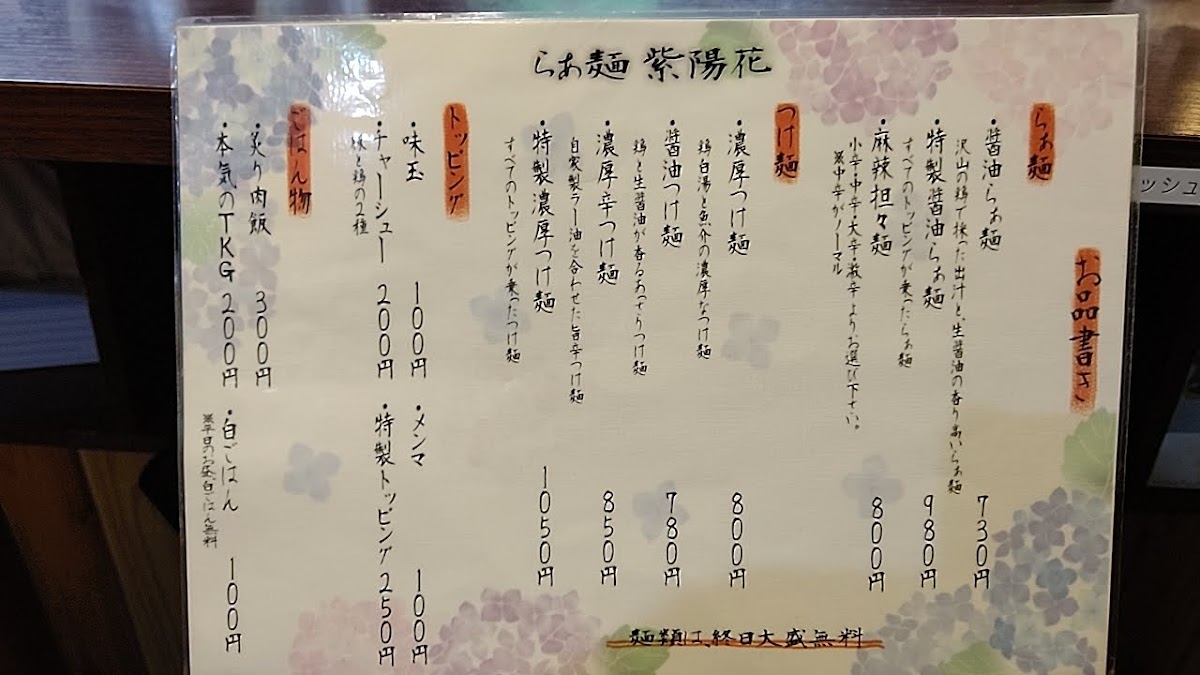 らぁ麺 紫陽花
お品書き
らぁ麺
・醤油らぁ麺 730円
沢山の鶏で採った出汁と、生醤油の香り高いらぁ麺
・特製醤油らぁ麺 980円
すべてのトッピングが乗ったらぁ麺
・麻辣担々麺 800円
小辛・中辛・大辛・激辛よりお選び下さい。
※中辛がノーマル
つけ麺
・濃厚つけ麺 800円
鶏白湯と魚介の濃厚なつけ麺
・醤油つけ麺 780円
鶏と生醤油が香るあっさりつけ麺
・濃厚辛つけ麺 850円
自家製ラー油を合わせた旨辛つけ麺
・特製濃厚つけ麺 1050円
すべてのトッピングが乗ったつけ麺
トッピング
・味玉 100円
・メンマ 100円
・チャーシュー 200円
豚と鶏の2種
・特製トッピング 250円
ごはん物
・炙り肉飯 300円
・本気のTKG 200円
・白ごはん 100円
※平日のお昼白ごはん無料
麺類は、終日大盛無料
ッシュ